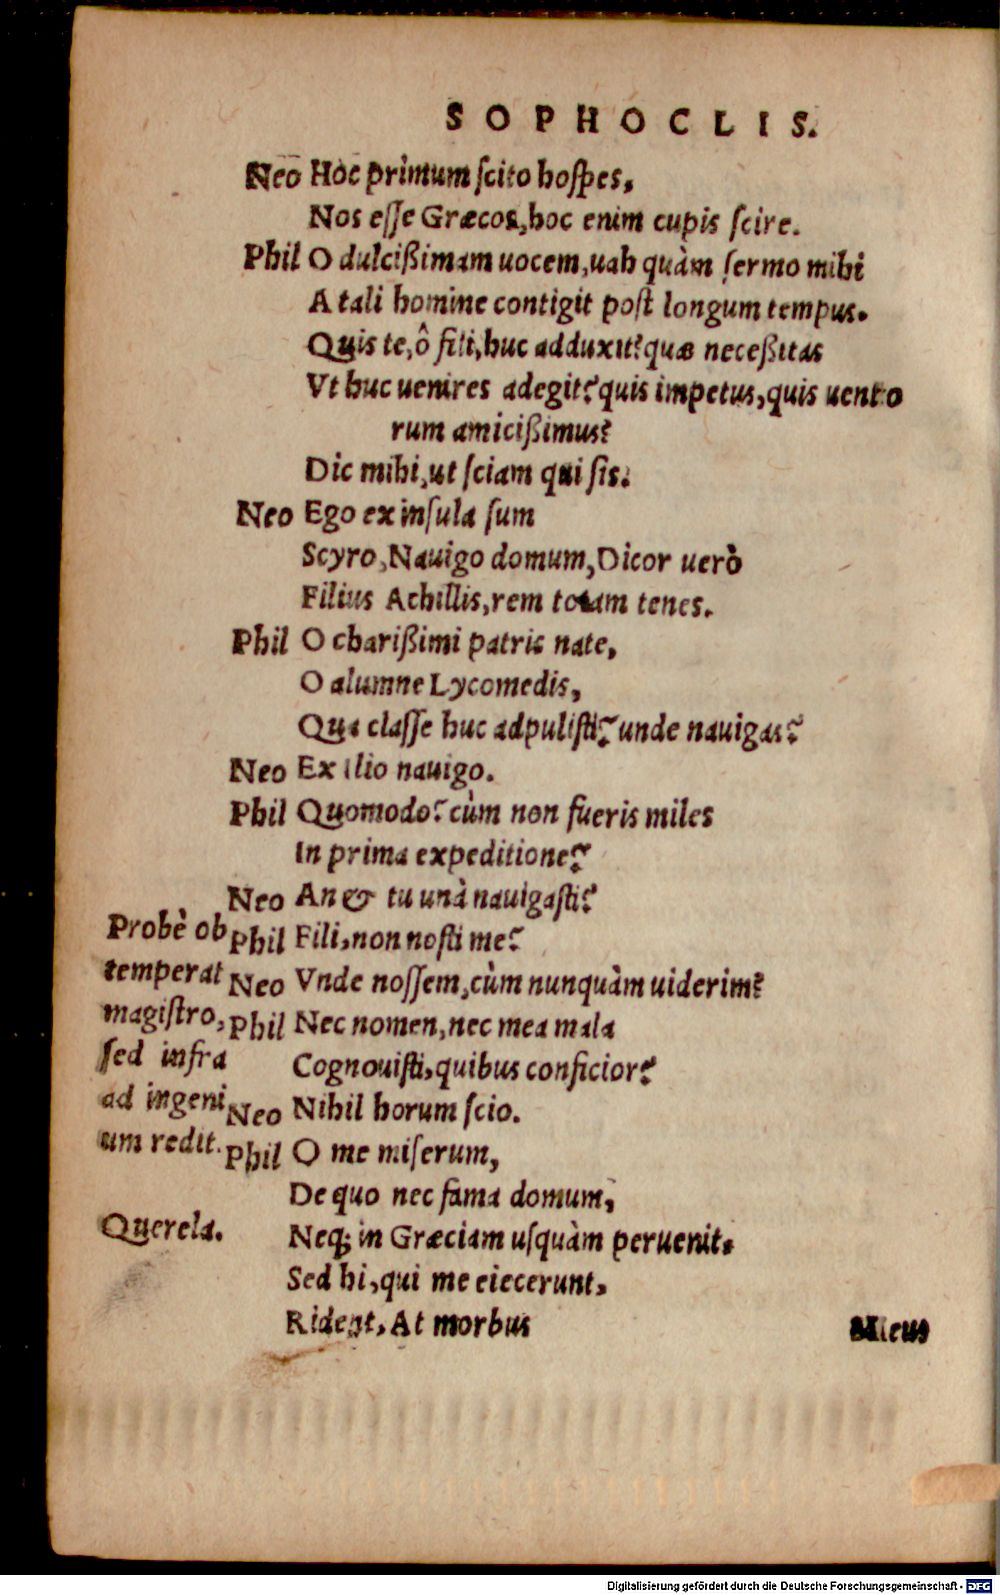 SOPHOCLIS.
Neo Hoc primum ſcito hoſpes,
Nos eſſe Græcos, hoc enim cupis ſcire.
Phil O dulcißimam uocem, uah quàm ſermo mihi
A tali homine contigit poſt longum tempus.
Quis te, ô fili, huc adduxit? quæ neceßitas
Vt huc uenires adegit? quis impetus, quis uento
rum amicißimus?
Dic mihi, ut ſciam qui ſis.
Neo Ego ex inſula ſum
Scyro, Nauigo domum, Dicor uerò
Filius Achillis, rem totam tenes.
Phil O charißimi patris nate,
O alumne Lycomedis,
Qua claſſe huc adpuliſti? unde nauigas?
Neo Ex Ilio nauigo.
Phil Quomodo? cùm non fueris miles
In prima expeditione?
Neo An & tu unà nauigaſti?
Phil Fili, non noſti me?
Neo Vnde noſſem, cùm nunquàm uiderim?
Phil Nec nomen, nec mea mala
Cognouiſti, quibus conficior?
Neo Nihil horum ſcio.
Phil O me miſerum,
De quo nec fama domum,
Neq; in Græciam uſquàm peruenit.
Sed hi, qui me eiecerunt,
Rident, At morbus
Meus
Probè ob
temperat
magiſtro,
ſed infra
ad ingeni
um redit.
Querela.
Digitalisierung gefördert durch die Deutsche Forschungsgemeinschaft - DFG